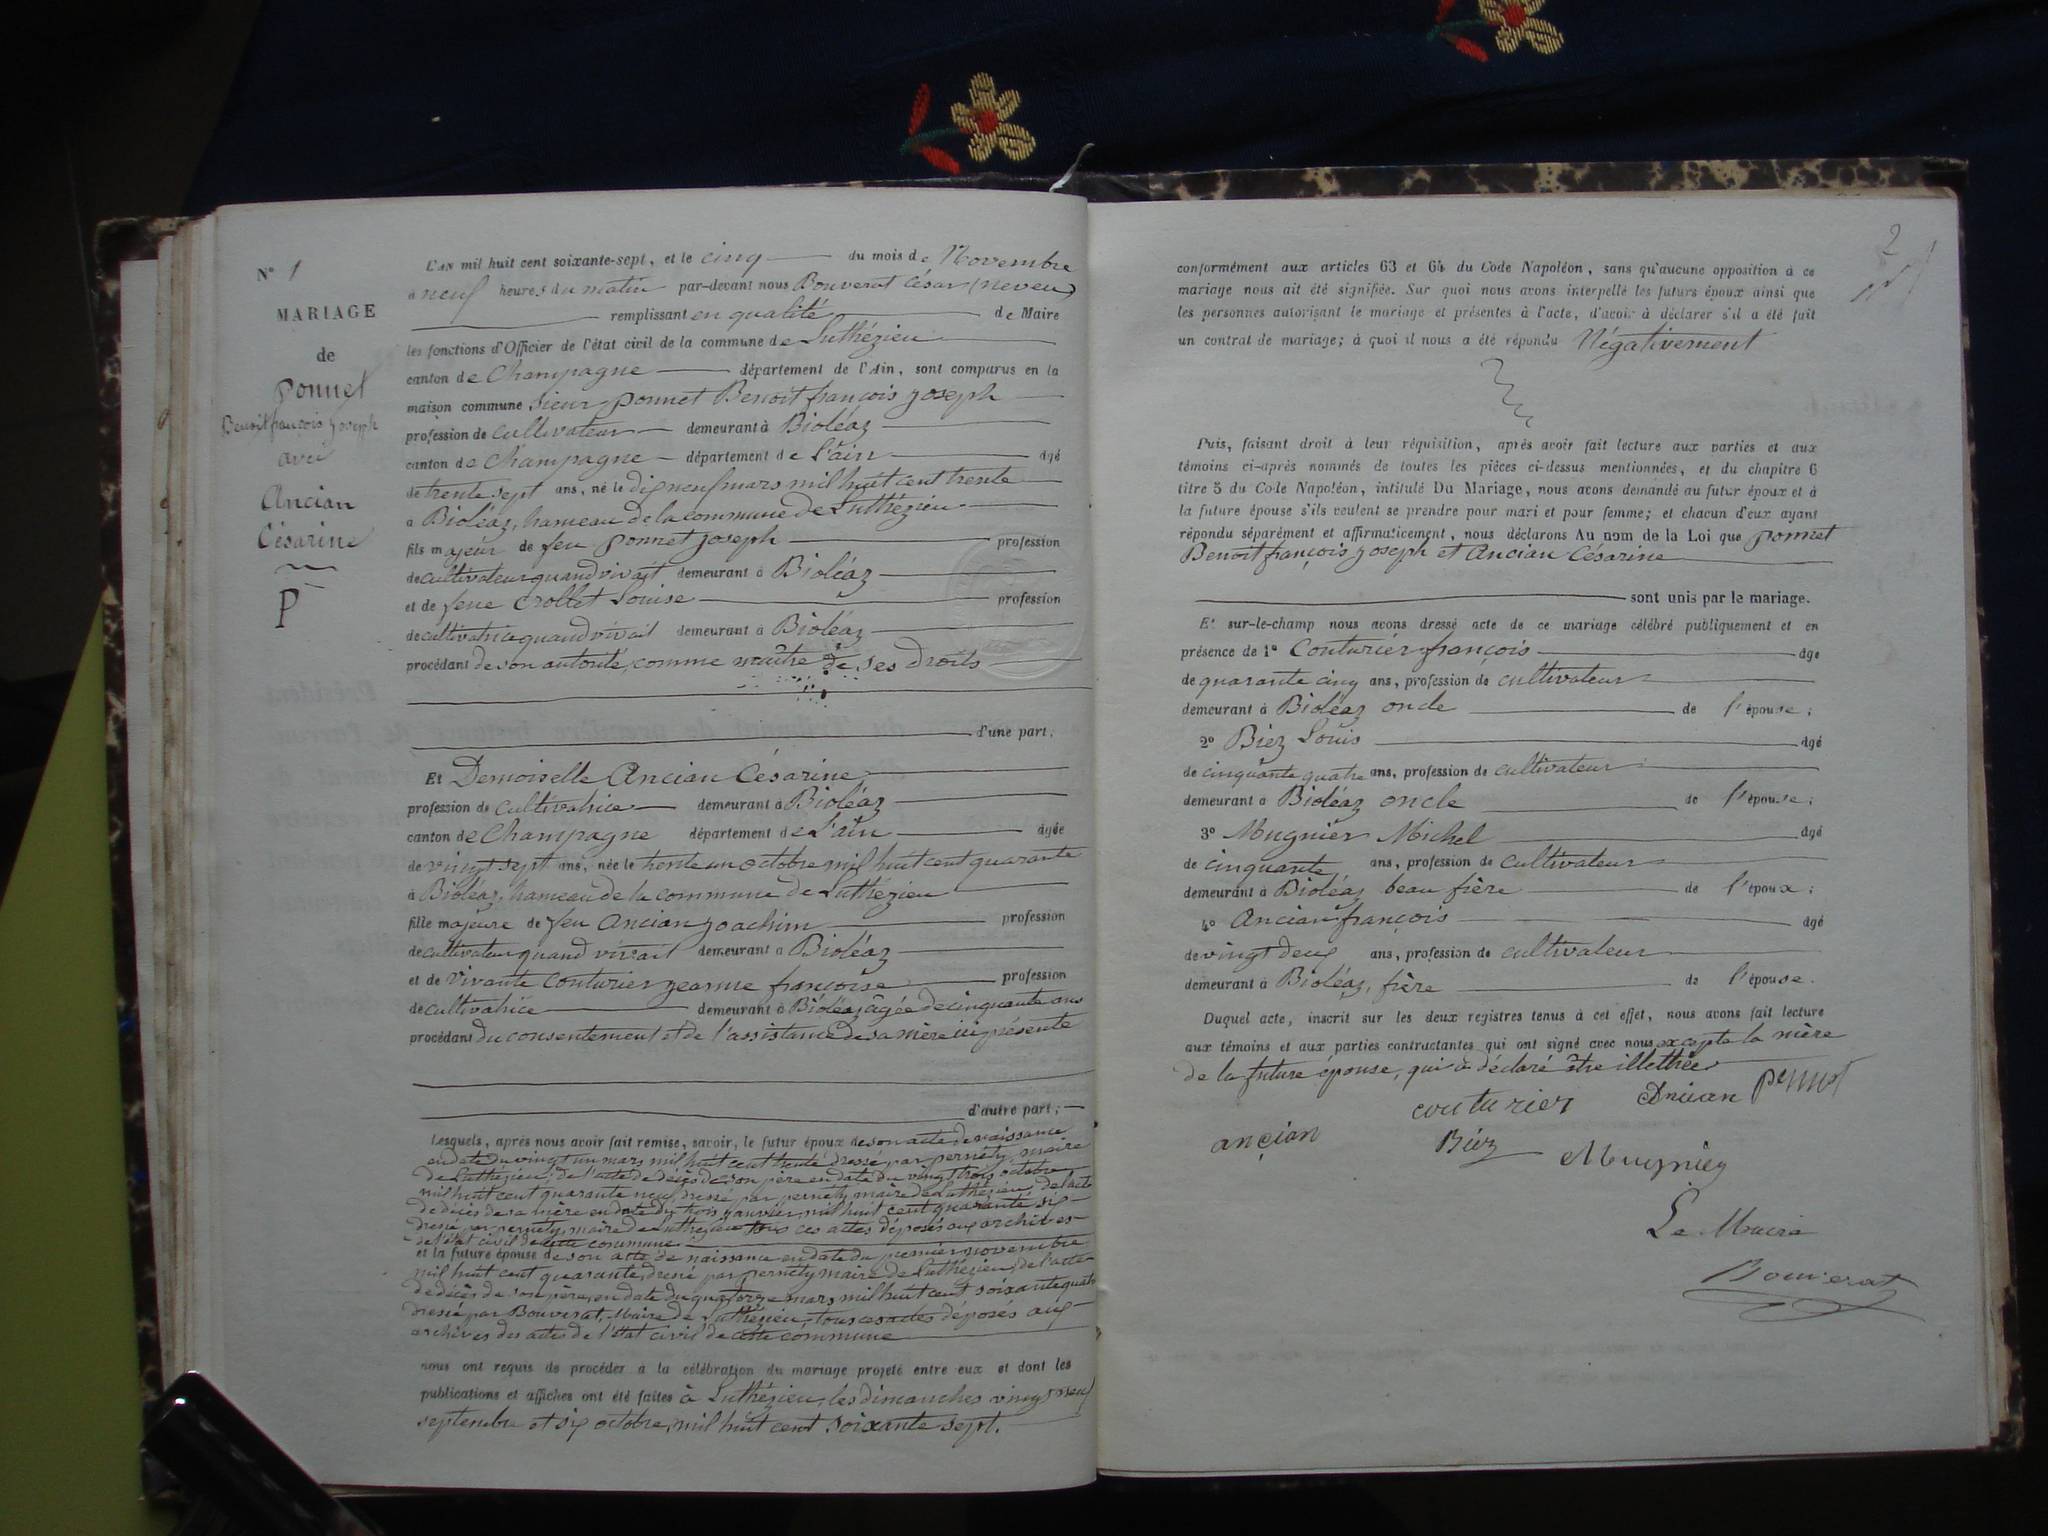 N° 1
MARIAGE
de
Ponnet
Benoit françois Joseph
avec
Ancian
Césarine
P
L'AN mil huit cent soixante-sept, et le cinq du mois de Novembre
à neuf heures du matin par-devant nous Bouverat César (neveu)
remplissant en qualité de Maire
les fonctions d'Officier de l'état civil de la commune de Luthézieu
canton de Champagne département de l'Ain, sont comparus en la
maison commune Sieur ponnet Benoit françois Joseph
profession de cultivateur demeurant à Bioléaz
canton de Champagne département de L'ain âgé
de trente sept ans, né le dix neuf mars mil huit cent trente
à Bioléaz, hameau de la commune de Luthézieu
fils majeur de feu ponnet Joseph profession
de cultivateur quand vivait demeurant à Bioléaz
et de feue Crollet Louise profession
de cultivatrice quand vivait demeurant à Bioléaz
procédant de son autorité, comme maître de ses droits
d'une part,
Et Demoiselle Ancian Césarine
profession de cultivatrice demeurant à Bioléaz
canton de Champagne département de L'ain âgée
de vingt sept ans, née le trente un octobre mil huit cent quarante
à Bioléaz, hameau de la commune de Luthézieu
fille majeure de feu Ancian Joachim profession
de cultivateur quand vivait demeurant à Bioléaz
et de vivante Couturier Jeanne françoise profession
de cultivatrice demeurant à Bioléaz, âgée de cinquante ans
procédant du consentement et de l'assistance de sa mère ici présente
d'autre part;
Lesquels, après nous avoir fait remise, savoir, le futur époux de son acte de naissance
en date du vingt un mars mil huit cent trente dressé par pernéty, maire
de Luthézieu, de l'acte de décès de son père en date du vingt trois octobre
mil huit cent quarante neuf, dressé par pernéty maire de Luthézieu, de l'acte
de décès de sa mère en date du trois Janvier mil huit cent quarante six
dressé par pernéty, maire de Luthézieu tous ces actes déposés aux archives
de l'état civil de cette commune
et la future épouse de son acte de naissance en date du premier novembre
mil huit cent quarante, dressé par pernéty maire de Luthézieu, de l'acte
de décès de son père, en date du quatorze mars mil huit cent soixante quatre
dressé par Bouverat, Maire de Luthézieu, tous ces actes déposés aux
archives des actes de l'état civil de cette commune
nous ont requis de procéder à la célébration du mariage projeté entre eux et dont les
publications et affiches ont été faites à Luthézieu, les dimanches vingt neuf
septembre et six octobre, mil huit cent soixante sept.
2
conformément aux articles 63 et 64 du Code Napoléon, sans qu'aucune opposition à ce
mariage nous ait été signifiée. Sur quoi nous avons interpellé les futurs époux ainsi que
les personnes autorisant le mariage et présentes à l'acte, d'avoir à déclarer s'il a été fait
un contrat de mariage; à quoi il nous a été répondu Négativement
Puis, faisant droit à leur réquisition, après avoir fait lecture aux parties et aux
témoins ci-après nommés de toutes les pièces ci-dessus mentionnées, et du chapitre 6
titre 5 du Code Napoléon, intitulé Du Mariage, nous avons demandé au futur époux et à
la future épouse s'ils veulent se prendre pour mari et pour femme; et chacun d'eux ayant
répondu séparément et affirmativement, nous déclarons Au nom de la Loi que ponnet
Benoit françois Joseph et Ancian Césarine
sont unis par le mariage.
Et sur-le-champ nous avons dressé acte de ce mariage célébré publiquement et en
présence de 1° Couturier françois âgé
de quarante cinq ans, profession de cultivateur
demeurant à Bioléaz oncle de l'épouse;
2° Biez Louis âgé
de cinquante quatre ans, profession de cultivateur
demeurant à Bioléaz oncle de l'épouse;
3° Mugnier Michel âgé
de cinquante ans, profession de cultivateur
demeurant à Bioléaz beau frère de l'époux;
4° Ancian françois âgé
de vingt deux ans, profession de cultivateur
demeurant à Bioléaz, frère de l'épouse.
Duquel acte, inscrit sur les deux registres tenus à cet effet, nous avons fait lecture
aux témoins et aux parties contractantes qui ont signé avec nous excepté la mère
de la future épouse, qui a déclaré être illettrée
couturier Ancian
ançian Biez Mugnier
Le Maire
Bouverat